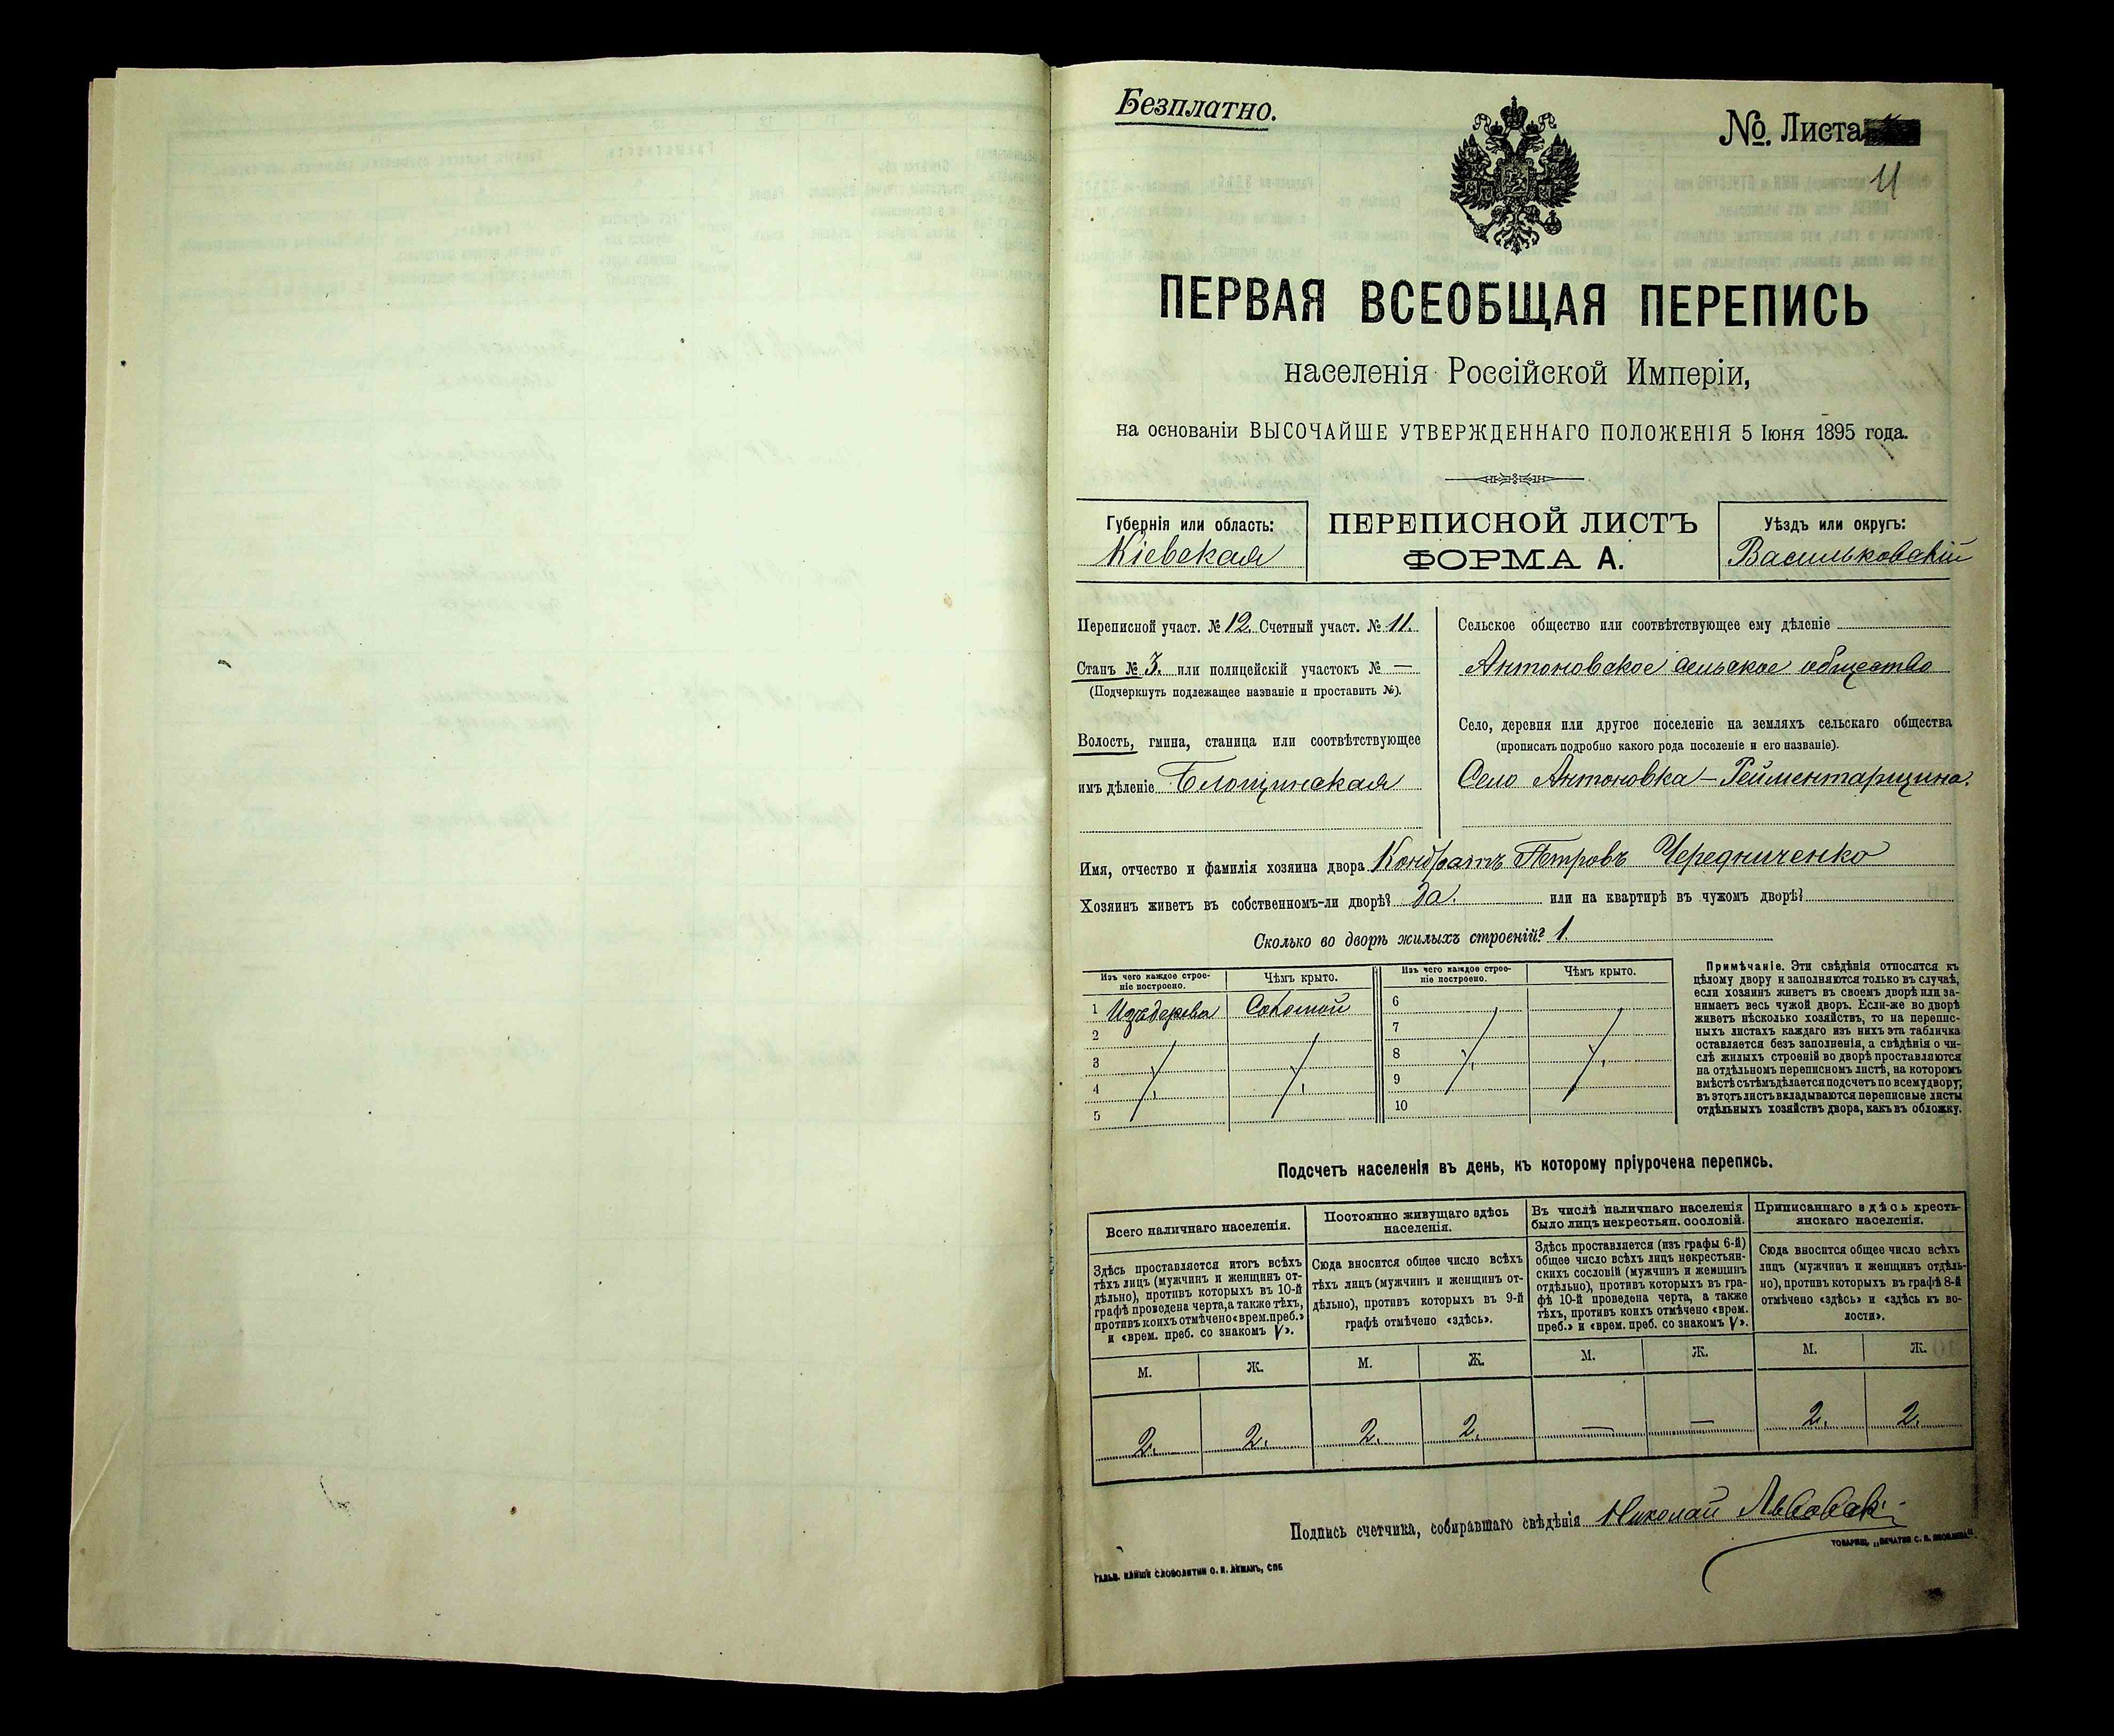 Безплатно.
№. Листа
11
ПЕРВАЯ ВСЕОБЩАЯ ПЕРЕПИСЬ
населенія Россійской Имперіи,
на основаніи ВЫСОЧАЙШЕ УТВЕРЖДЕННАГО ПОЛОЖЕНІЯ 5 Іюня 1895 года.
Губернія или область:
Кіевская
ПЕРЕПИСНОЙ ЛИСТЪ
ФОРМА А.
Уѣздъ или округъ:
Васильковскій
Переписной участ. № 12. Счетный участ. № 11.
Станъ № 3. или полицейскій участокъ № —
(Подчеркнуть подлежащее названіе и проставить №).
Волость, гмина, станица или соотвѣтствующее
имъ дѣленіе
Сельское общество или соотвѣтствующее ему дѣленіе
Антоновское сельское общество
Село, деревня или другое поселеніе на земляхъ сельскаго общества
(прописать подробно какого рода поселеніе и его названіе).
Село Антоновка — Рейментарщина.
Имя, отчество и фамилія хозяина двора Кондратъ Петровъ Чередниченко
Хозяинъ живетъ въ собственномъ-ли дворѣ? Да. или на квартирѣ въ чужомъ дворѣ?
Сколько во дворѣ жилыхъ строеній? 1.
Изъ чего каждое строе-
ніе построено.
Чѣмъ крыто.
Изъ чего каждое строе-
ніе построено.
Чѣмъ крыто.
1 Изъ дерева Соломой
2
3
4
5
6
7
8
9
10
Примѣчаніе. Эти свѣдѣнія относятся къ
цѣлому двору и заполняются только въ случаѣ,
если хозяинъ живетъ въ своемъ дворѣ или за-
нимаетъ весь чужой дворъ. Если-же во дворѣ
живетъ нѣсколько хозяйствъ, то на перепис-
ныхъ листахъ каждаго изъ нихъ эта табличка
оставляется безъ заполненія, а свѣдѣнія о чи-
слѣ жилыхъ строеній во дворѣ проставляются
на отдѣльномъ переписномъ листѣ, на которомъ
вмѣстѣ съ тѣмъ дѣлается подсчетъ по всему двору;
въ этотъ листъ вкладываются переписные листы
отдѣльныхъ хозяйствъ двора, какъ въ обложку.
Подсчетъ населенія въ день, къ которому пріурочена перепись.
Всего наличнаго населенія.
Здѣсь проставляется итогъ всѣхъ
тѣхъ лицъ (мужчинъ и женщинъ от-
дѣльно), противъ которыхъ въ 10-й
графѣ проведена черта, а также тѣхъ,
противъ коихъ отмѣчено «врем. преб.»
и «врем. преб. со знакомъ V».
Постоянно живущаго здѣсь
населенія.
Сюда вносится общее число всѣхъ
тѣхъ лицъ (мужчинъ и женщинъ от-
дѣльно), противъ которыхъ въ 9-й
графѣ отмѣчено «здѣсь».
Въ числѣ наличнаго населенія
было лицъ некрестьян. сословій.
Здѣсь проставляется (изъ графы 6-й)
общее число всѣхъ лицъ некрестьян-
скихъ сословій (мужчинъ и женщинъ
отдѣльно), противъ которыхъ въ гра-
фѣ 10-й проведена черта, а также
тѣхъ, противъ коихъ отмѣчено «врем.
преб.» и «врем. преб. со знакомъ V».
Приписаннаго здѣсь кресть-
янскаго населенія.
Сюда вносится общее число всѣхъ
лицъ (мужчинъ и женщинъ отдѣль-
но), противъ которыхъ въ графѣ 8-й
отмѣчено «здѣсь» и «здѣсь къ во-
лости».
М. Ж. М. Ж. М. Ж. М. Ж.
2. 2. 2. 2. — — 2. 2.
Подпись счетчика, собиравшаго свѣдѣнія Николай
ТОВАРИЩ. „ПЕЧАТНЯ С. П. ЯКОВЛЕВА".
СЛОВОЛИТНИ О. И. ЛЕМАНЪ, СПБ